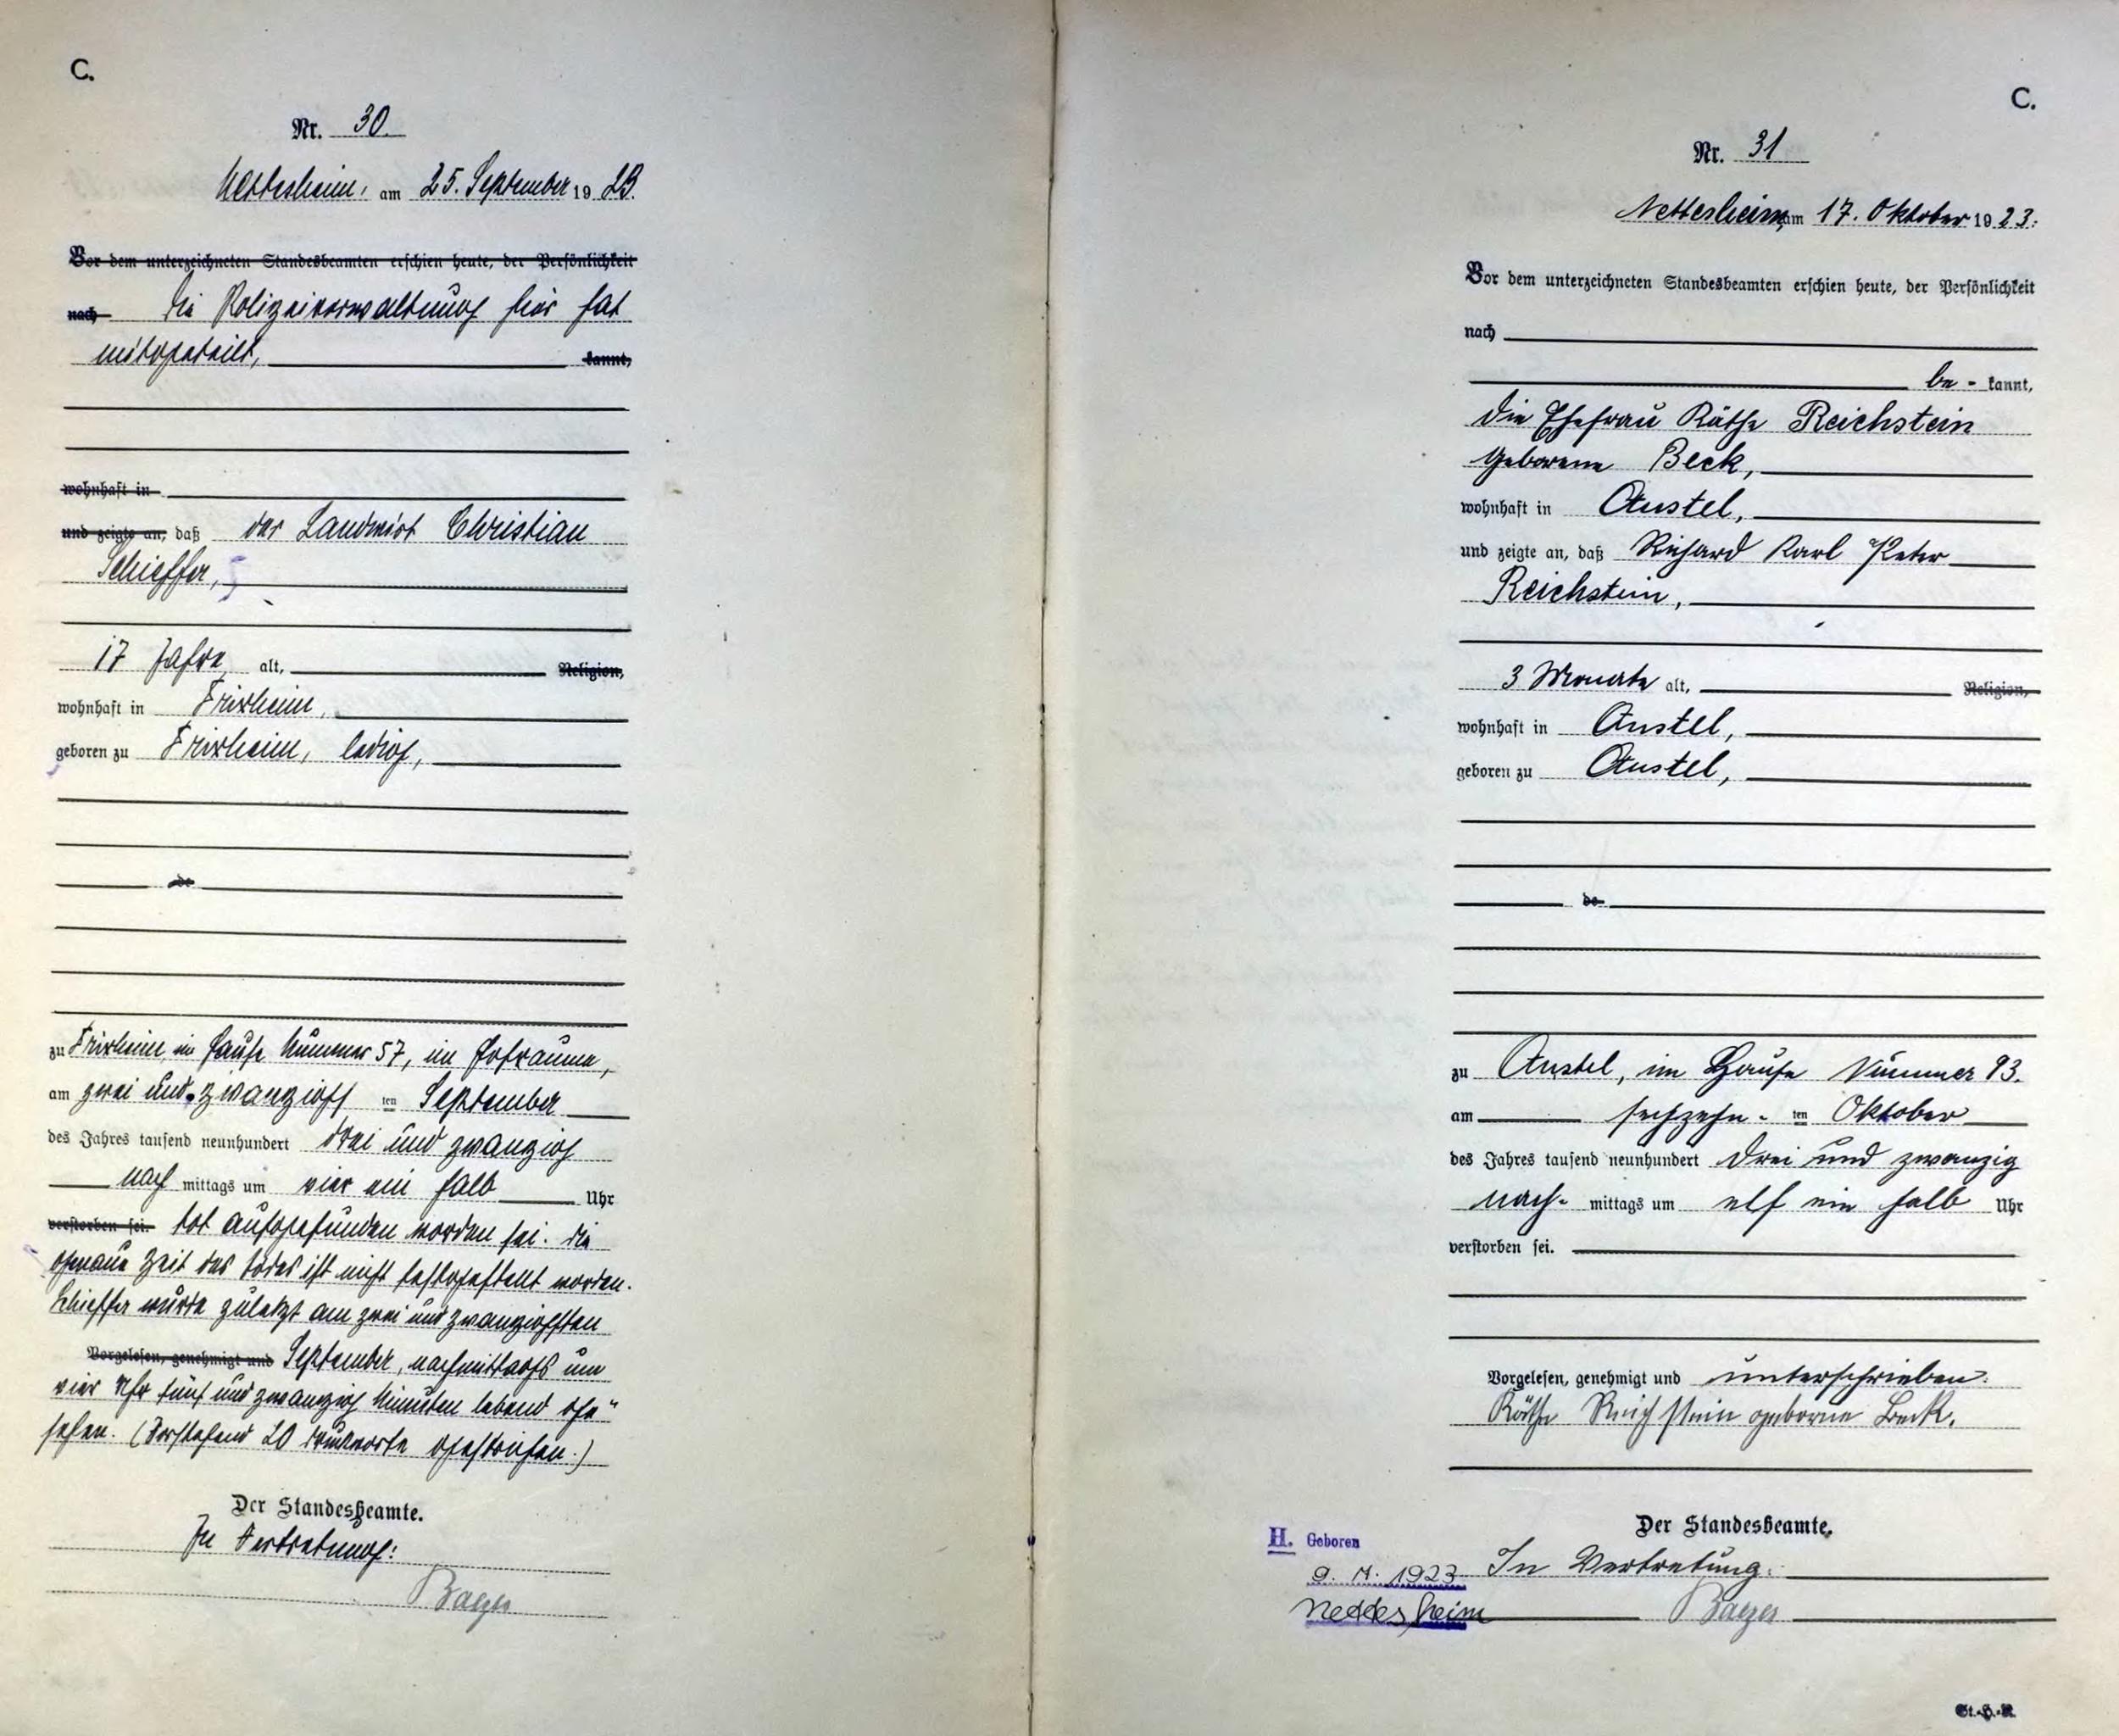 C.
Nr. 30.
Nettesheim, am 25. September 1923.
Vor dem unterzeichneten Standesbeamten erschien heute, der Persönlichkeit
nach die Polizeiverwaltung hier hat
mitgeteilt, kannt,
wohnhaft in
und zeigte an, daß der Landwirt Christian
Schieffer,
17 Jahre alt, Religion,
wohnhaft in Frixheim,
geboren zu Frixheim, ledig,
de
zu Frixheim, im Hause Nummer 57, im Hofraume,
am zwei und zwanzigst ten September
des Jahres tausend neunhundert drei und zwanzig
nach mittags um vier ein halb Uhr
verstorben sei. tot aufgefunden worden sei. Die
genaue Zeit des Todes ist nicht festgestellt worden.
Schieffer wurde zuletzt am zwei und zwanzigsten
Vorgelesen, genehmigt und September, nachmittags um
vier Uhr fünf und zwanzig Minuten lebend ge"
sehen. (Vorstehend 20 Druckworte gestrichen.)
Der Standesbeamte.
In Vertretung:
C.
Nr. 31
Nettesheim, am 17. Oktober 1923.
Vor dem unterzeichneten Standesbeamten erschien heute, der Persönlichkeit
nach
be - kannt,
die Ehefrau Käthe Reichstein
geborene Beck,
wohnhaft in Anstel,
und zeigte an, daß Richard Karl Peter
Reichstein,
3 Monate alt, Religion,
wohnhaft in Anstel,
geboren zu Anstel,
de
zu Anstel, im Hause Nummer 93.
am sechzehn- ten Oktober
des Jahres tausend neunhundert drei und zwanzig
nach- mittags um elf ein halb Uhr
verstorben sei.
Vorgelesen, genehmigt und unterschrieben.
Käthe Reichstein geborne Beck.
Der Standesbeamte.
In Vertretung:
H. Geboren
1923
Nettesheim
St.-H.-R.